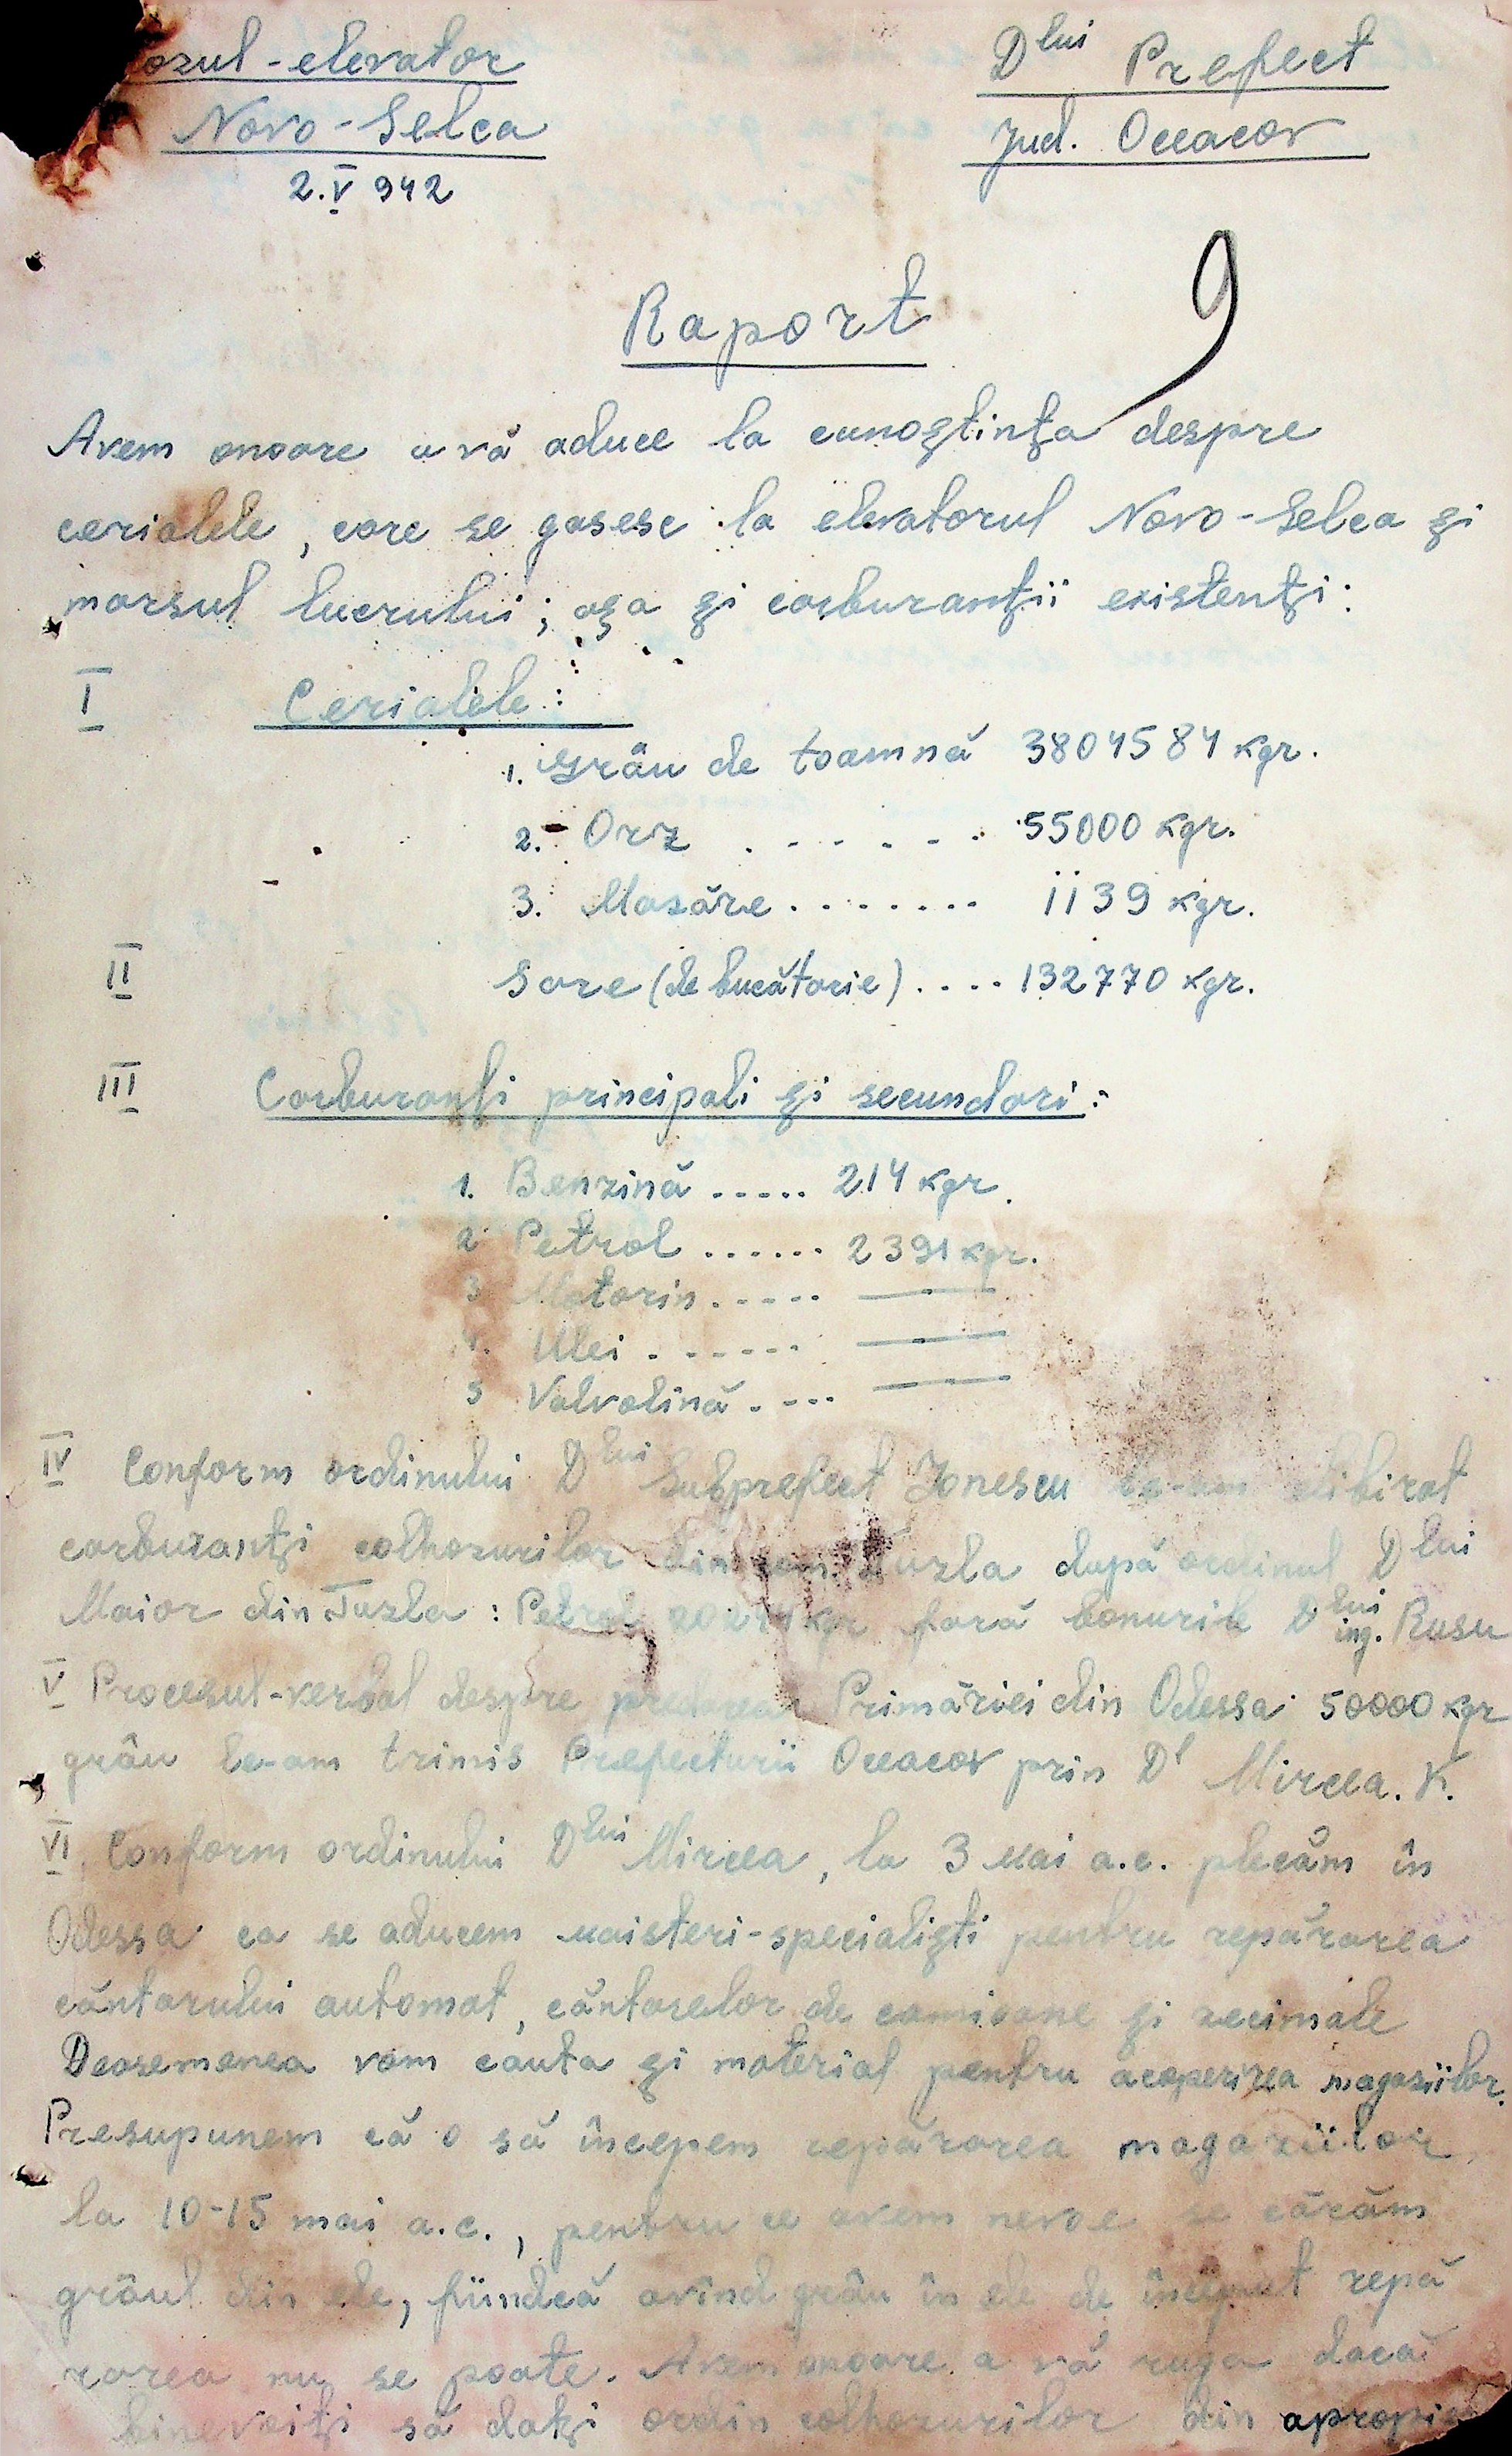 ozul-elevator
Novo-Selca
2.V 942
Dlui Prefect
Jud. Oceacov
9
Raport
Avem onoare a vă aduce la cunoștința despre
cerialele, care se gasesc la elevatorul Novo-Selca și
marsul lucrului; așa și carburanții existenți:
I Cerialele:
1. Grâu de toamnă 3804584 kgr.
2. Orz . . . . . . . 55000 kgr.
3. Mazăre . . . . . . . . 1139 kgr.
II Sare (de bucătorie) . . . . 132770 kgr.
III Carburanți principali și secundari:
1. Benzină ..... 214 kgr.
2 Petrol ...... 2391 kgr.
3 Motorin ..... —
4. Ulei . ...... —
5 Valvolină . ... —
IV Conform ordinului Dlui Subprefect Ionescu le-am elibirat
carburanți colhozurilor din com. Tuzla după ordinul Dlui
Maior din Tuzla: Petrol kgr fară bonurile Dlui ing. Rusu
V Procesul-verbal despre predarea Primăriei din Odessa 50000 kgr
grâu le-am trimis Prefecturii Oceacov prin Dl Mircea. K.
VI Conform ordinului Dlui Mircea, la 3 mai a.c. plecăm în
Odessa ca se aducem maisteri-specialiști pentru repărarea
cântarului automat, cântarelor de camioane și zecimale
Deasemenea vom cauta și material pentru acoperirea magaziilor.
Presupunem că o să începem repărarea magaziilor
la 10-15 mai a.c., pentru ce avem nevoe se cărăm
grâul din ele, fiindcă avînd grâu în ele de început repă
rarea nu se poate. Avem onoare a vă ruga dacă
binevoiți să dați ordin colhozurilor din apropie